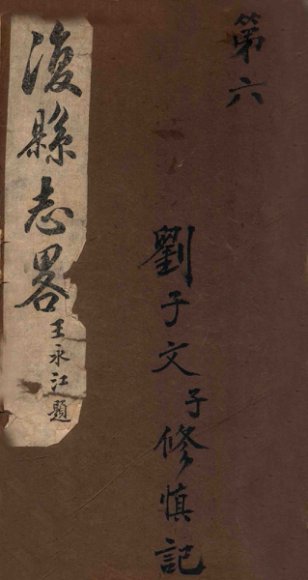 第六
劉子文子修慎記
復縣志畧
王永江題